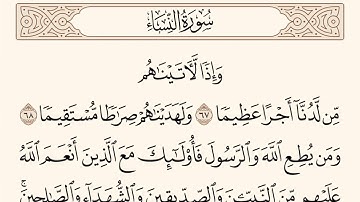 سُورَةُ النِّسَاءِ
وَإِذًا لَّآتَيْنَاهُم
مِّن لَّدُنَّا أَجْرًا عَظِيمًا ٦٧ وَلَهَدَيْنَاهُمْ صِرَاطًا مُّسْتَقِيمًا ٦٨
وَمَن يُطِعِ اللَّهَ وَالرَّسُولَ فَأُولَٰئِكَ مَعَ الَّذِينَ أَنْعَمَ اللَّهُ
عَلَيْهِم مِّنَ النَّبِيِّينَ وَالصِّدِّيقِينَ وَالشُّهَدَاءِ وَالصَّالِحِينَ ۚ